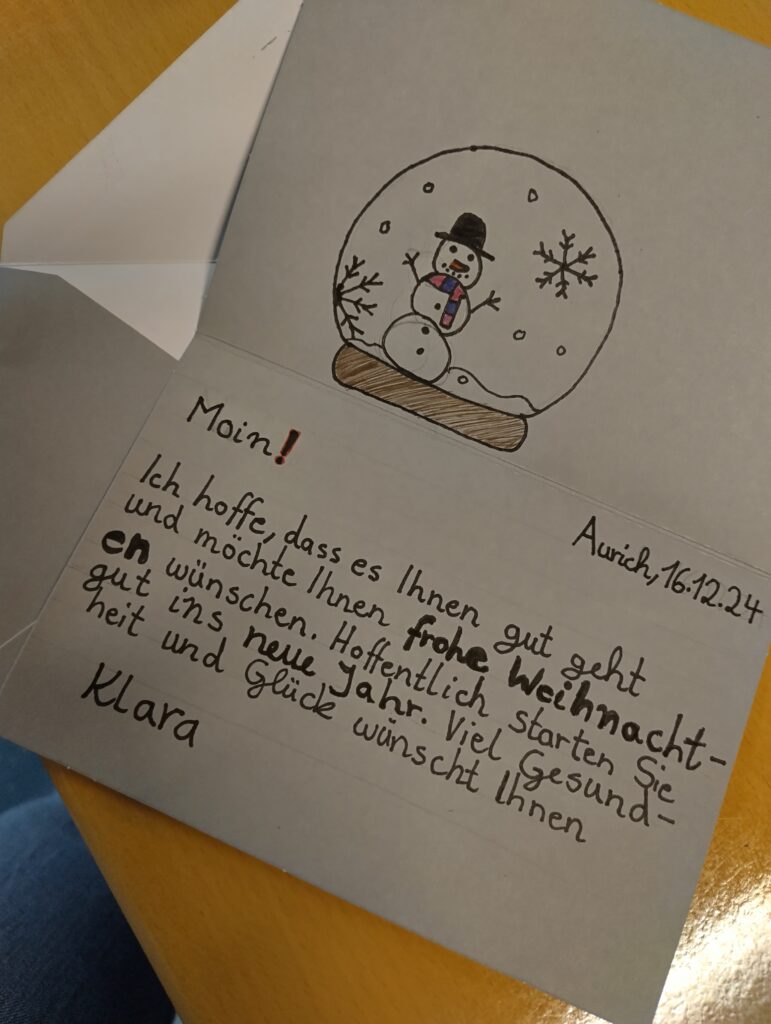 Moin!
Aurich, 16.12.24
Ich hoffe, dass es Ihnen gut geht
und möchte Ihnen frohe Weihnacht-
en wünschen. Hoffentlich starten Sie
gut ins neue Jahr. Viel Gesund-
heit und Glück wünscht Ihnen
Klara